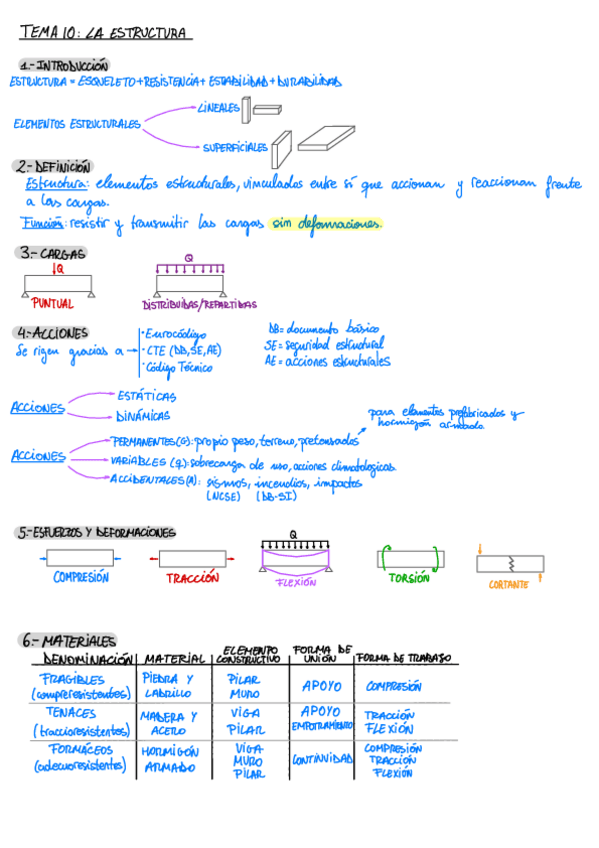 TEMA 10: LA ESTRUCTURA
1.- INTRODUCCIÓN
ESTRUCTURA = ESQUELETO + RESISTENCIA + ESTABILIDAD + DURABILIDAD
ELEMENTOS ESTRUCTURALES
LINEALES
SUPERFICIALES
2.- DEFINICIÓN
Estructura: elementos estructurales, vinculados entre sí que accionan y reaccionan frente
a las cargas.
Función: resistir y transmitir las cargas sin deformaciones.
3.- CARGAS
Q
PUNTUAL
Q
DISTRIBUIDAS/REPARTIDAS
4.- ACCIONES
Se rigen gracias a
· Eurocódigo
· CTE (DB, SE, AE)
· Código Técnico
DB = documento básico
SE = seguridad estructural
AE = acciones estructurales
ACCIONES
ESTÁTICAS
DINÁMICAS
ACCIONES
PERMANENTES (G): propio peso, terreno, pretensados
para elementos prefabricados y
hormigón armado
VARIABLES (Q): sobrecarga de uso, acciones climatológicas
ACCIDENTALES (A): sismos, incendios, impactos
(NCSE) (DB-SI)
5.- ESFUERZOS Y DEFORMACIONES
COMPRESIÓN
TRACCIÓN
Q
FLEXIÓN
TORSIÓN
CORTANTE
6.- MATERIALES
DENOMINACIÓN MATERIAL ELEMENTO CONSTRUCTIVO FORMA DE UNIÓN FORMA DE TRABAJO
FRAGIBLES (compreresistentes) PIEDRA Y LADRILLO PILAR MURO APOYO COMPRESIÓN
TENACES (traccioresistentes) MADERA Y ACERO VIGA PILAR APOYO EMPOTRAMIENTO TRACCIÓN FLEXIÓN
FORMÁCEOS (adecuoresistentes) HORMIGÓN ARMADO VIGA MURO PILAR CONTINUIDAD COMPRESIÓN TRACCIÓN FLEXIÓN